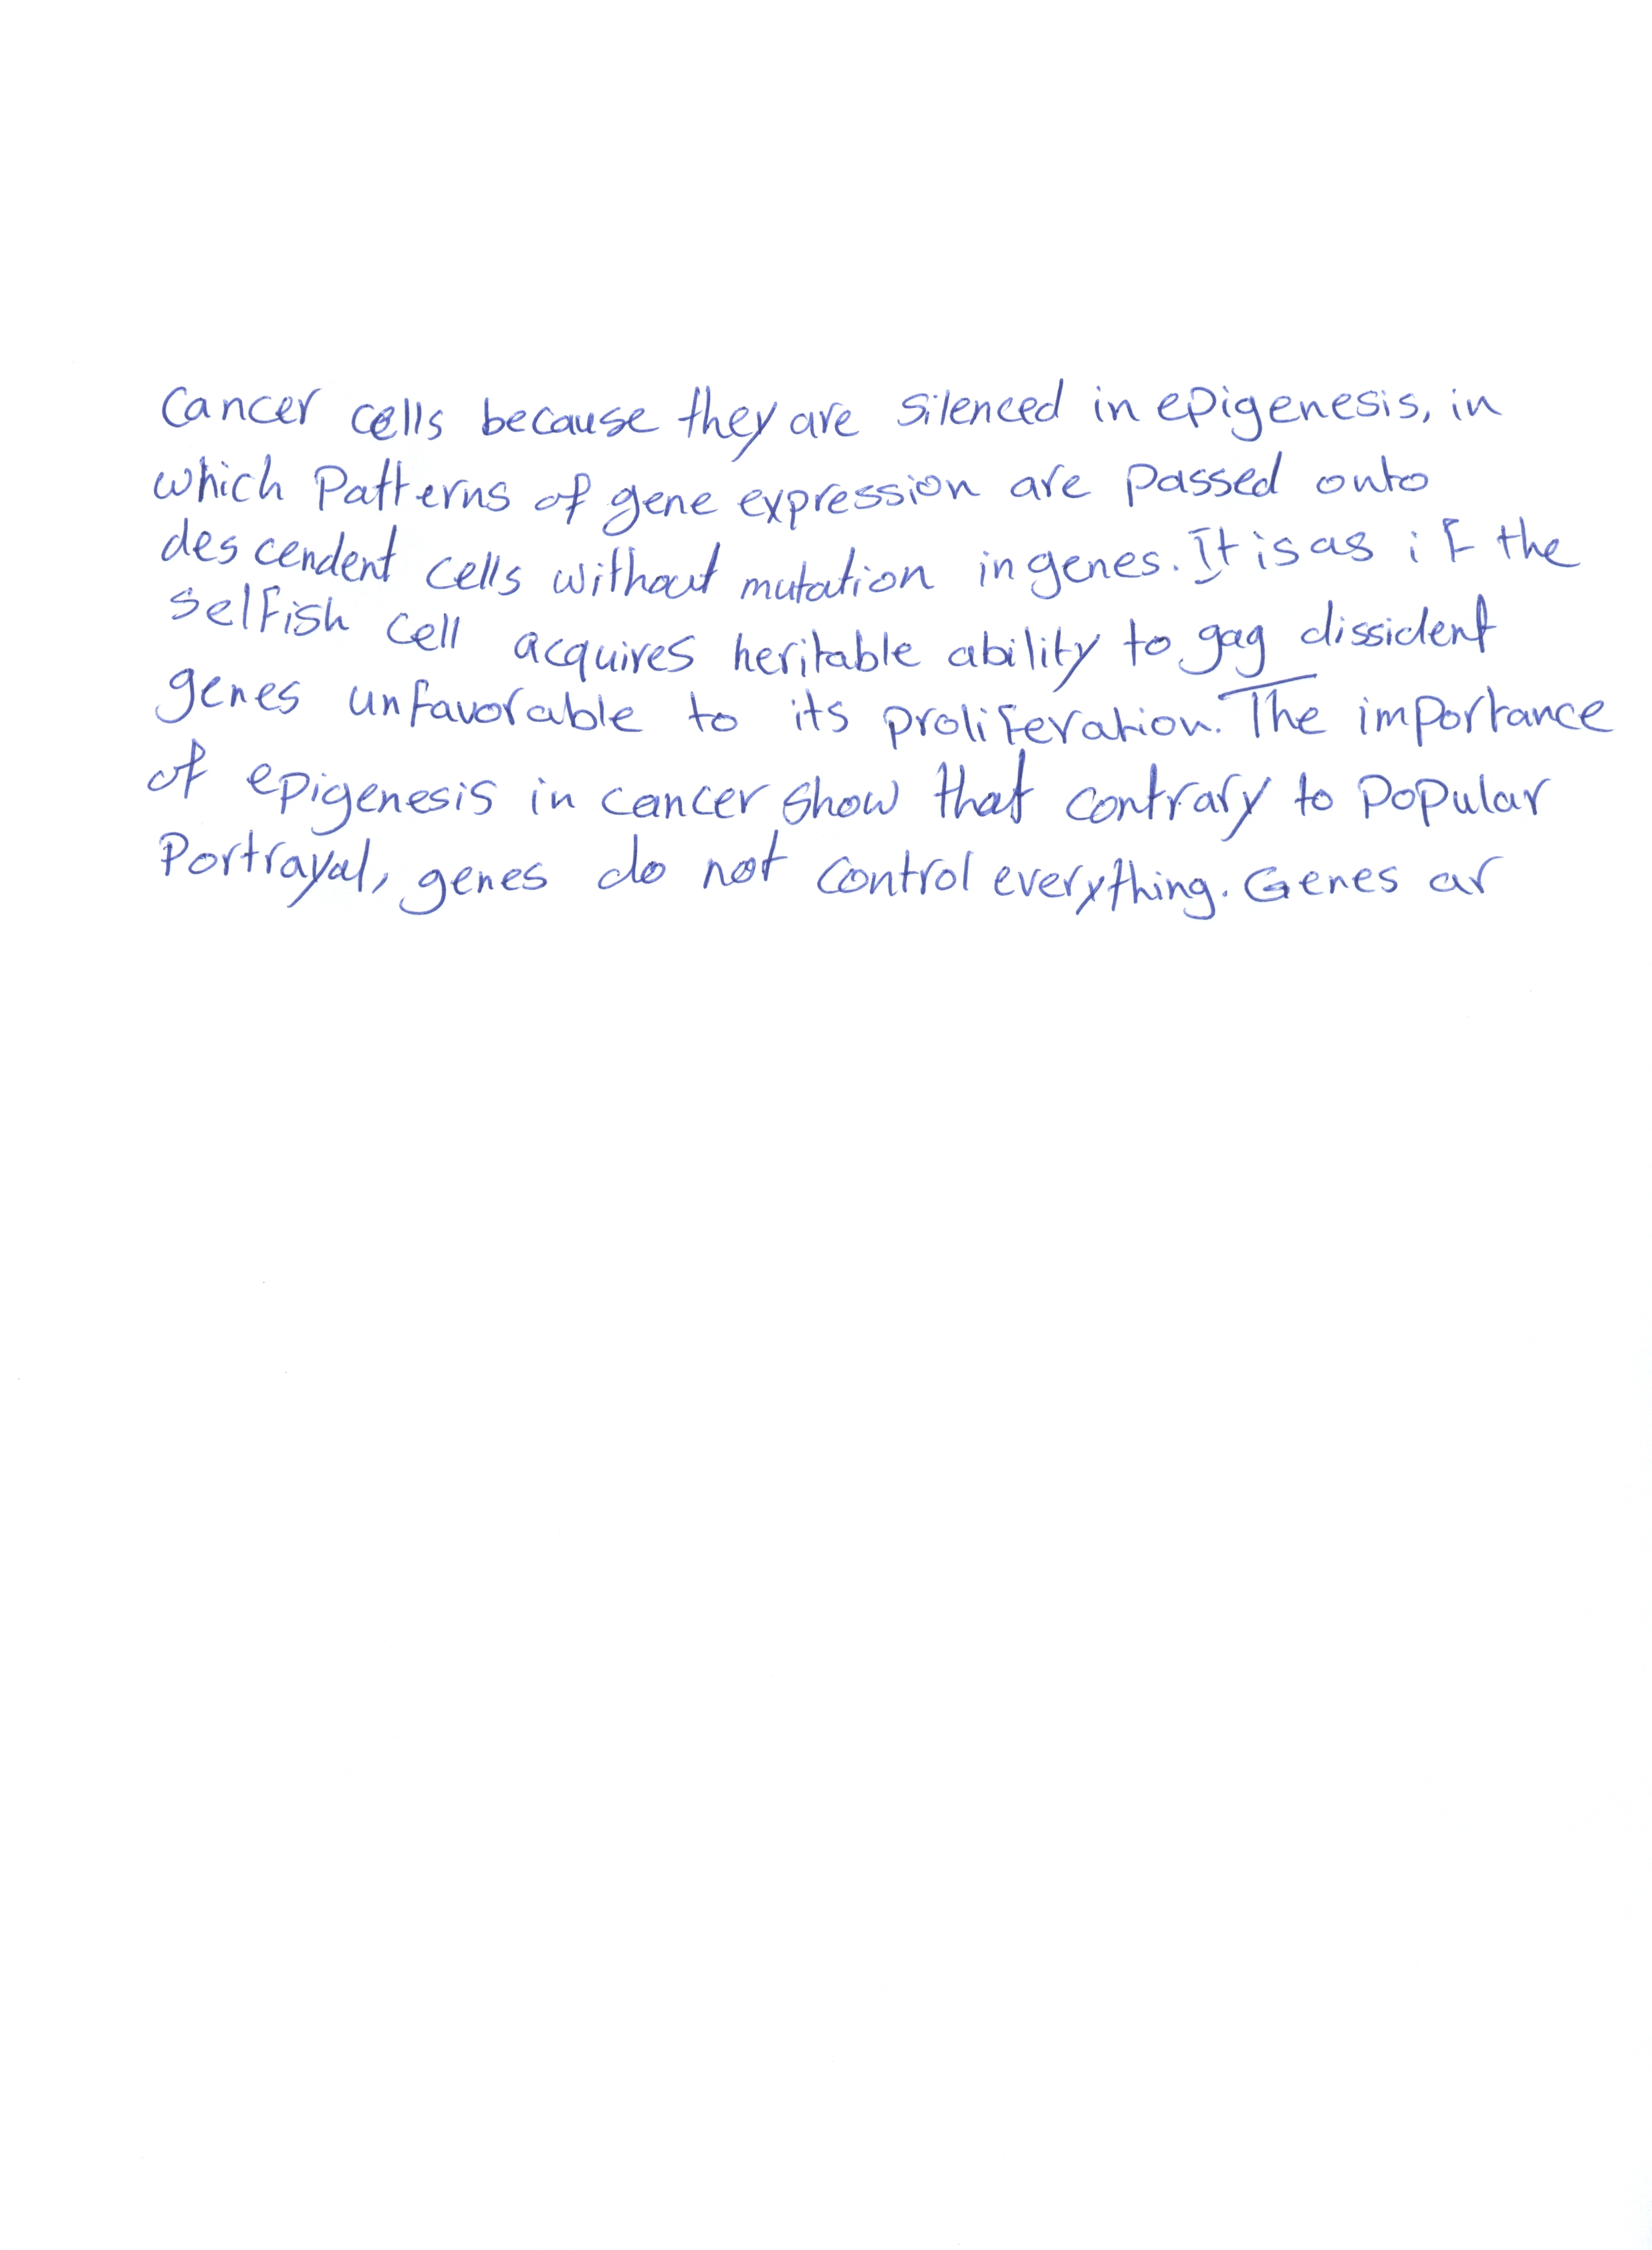 Cancer cells because they are silenced in epigenesis, in
which Patterns of gene expression are passed onto
descendent cells without mutation in genes. It is as if the
selfish cell acquires heritable ability to gag dissident
genes unfavorable to its proliferation. The importance
of epigenesis in cancer show that contrary to popular
Portrayal, genes do not control everything. Genes ar